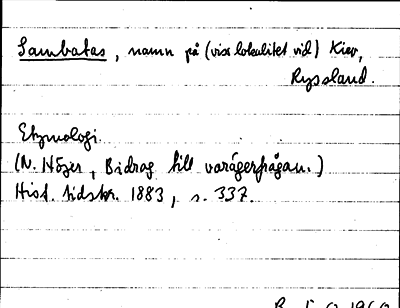 Sambatas, namn på (viss lokalitet vid) Kiev,
Ryssland.
Etymologi.
(N. Höjer, Bidrag till varägerfrågan.)
Hist. tidskr. 1883, s. 337.